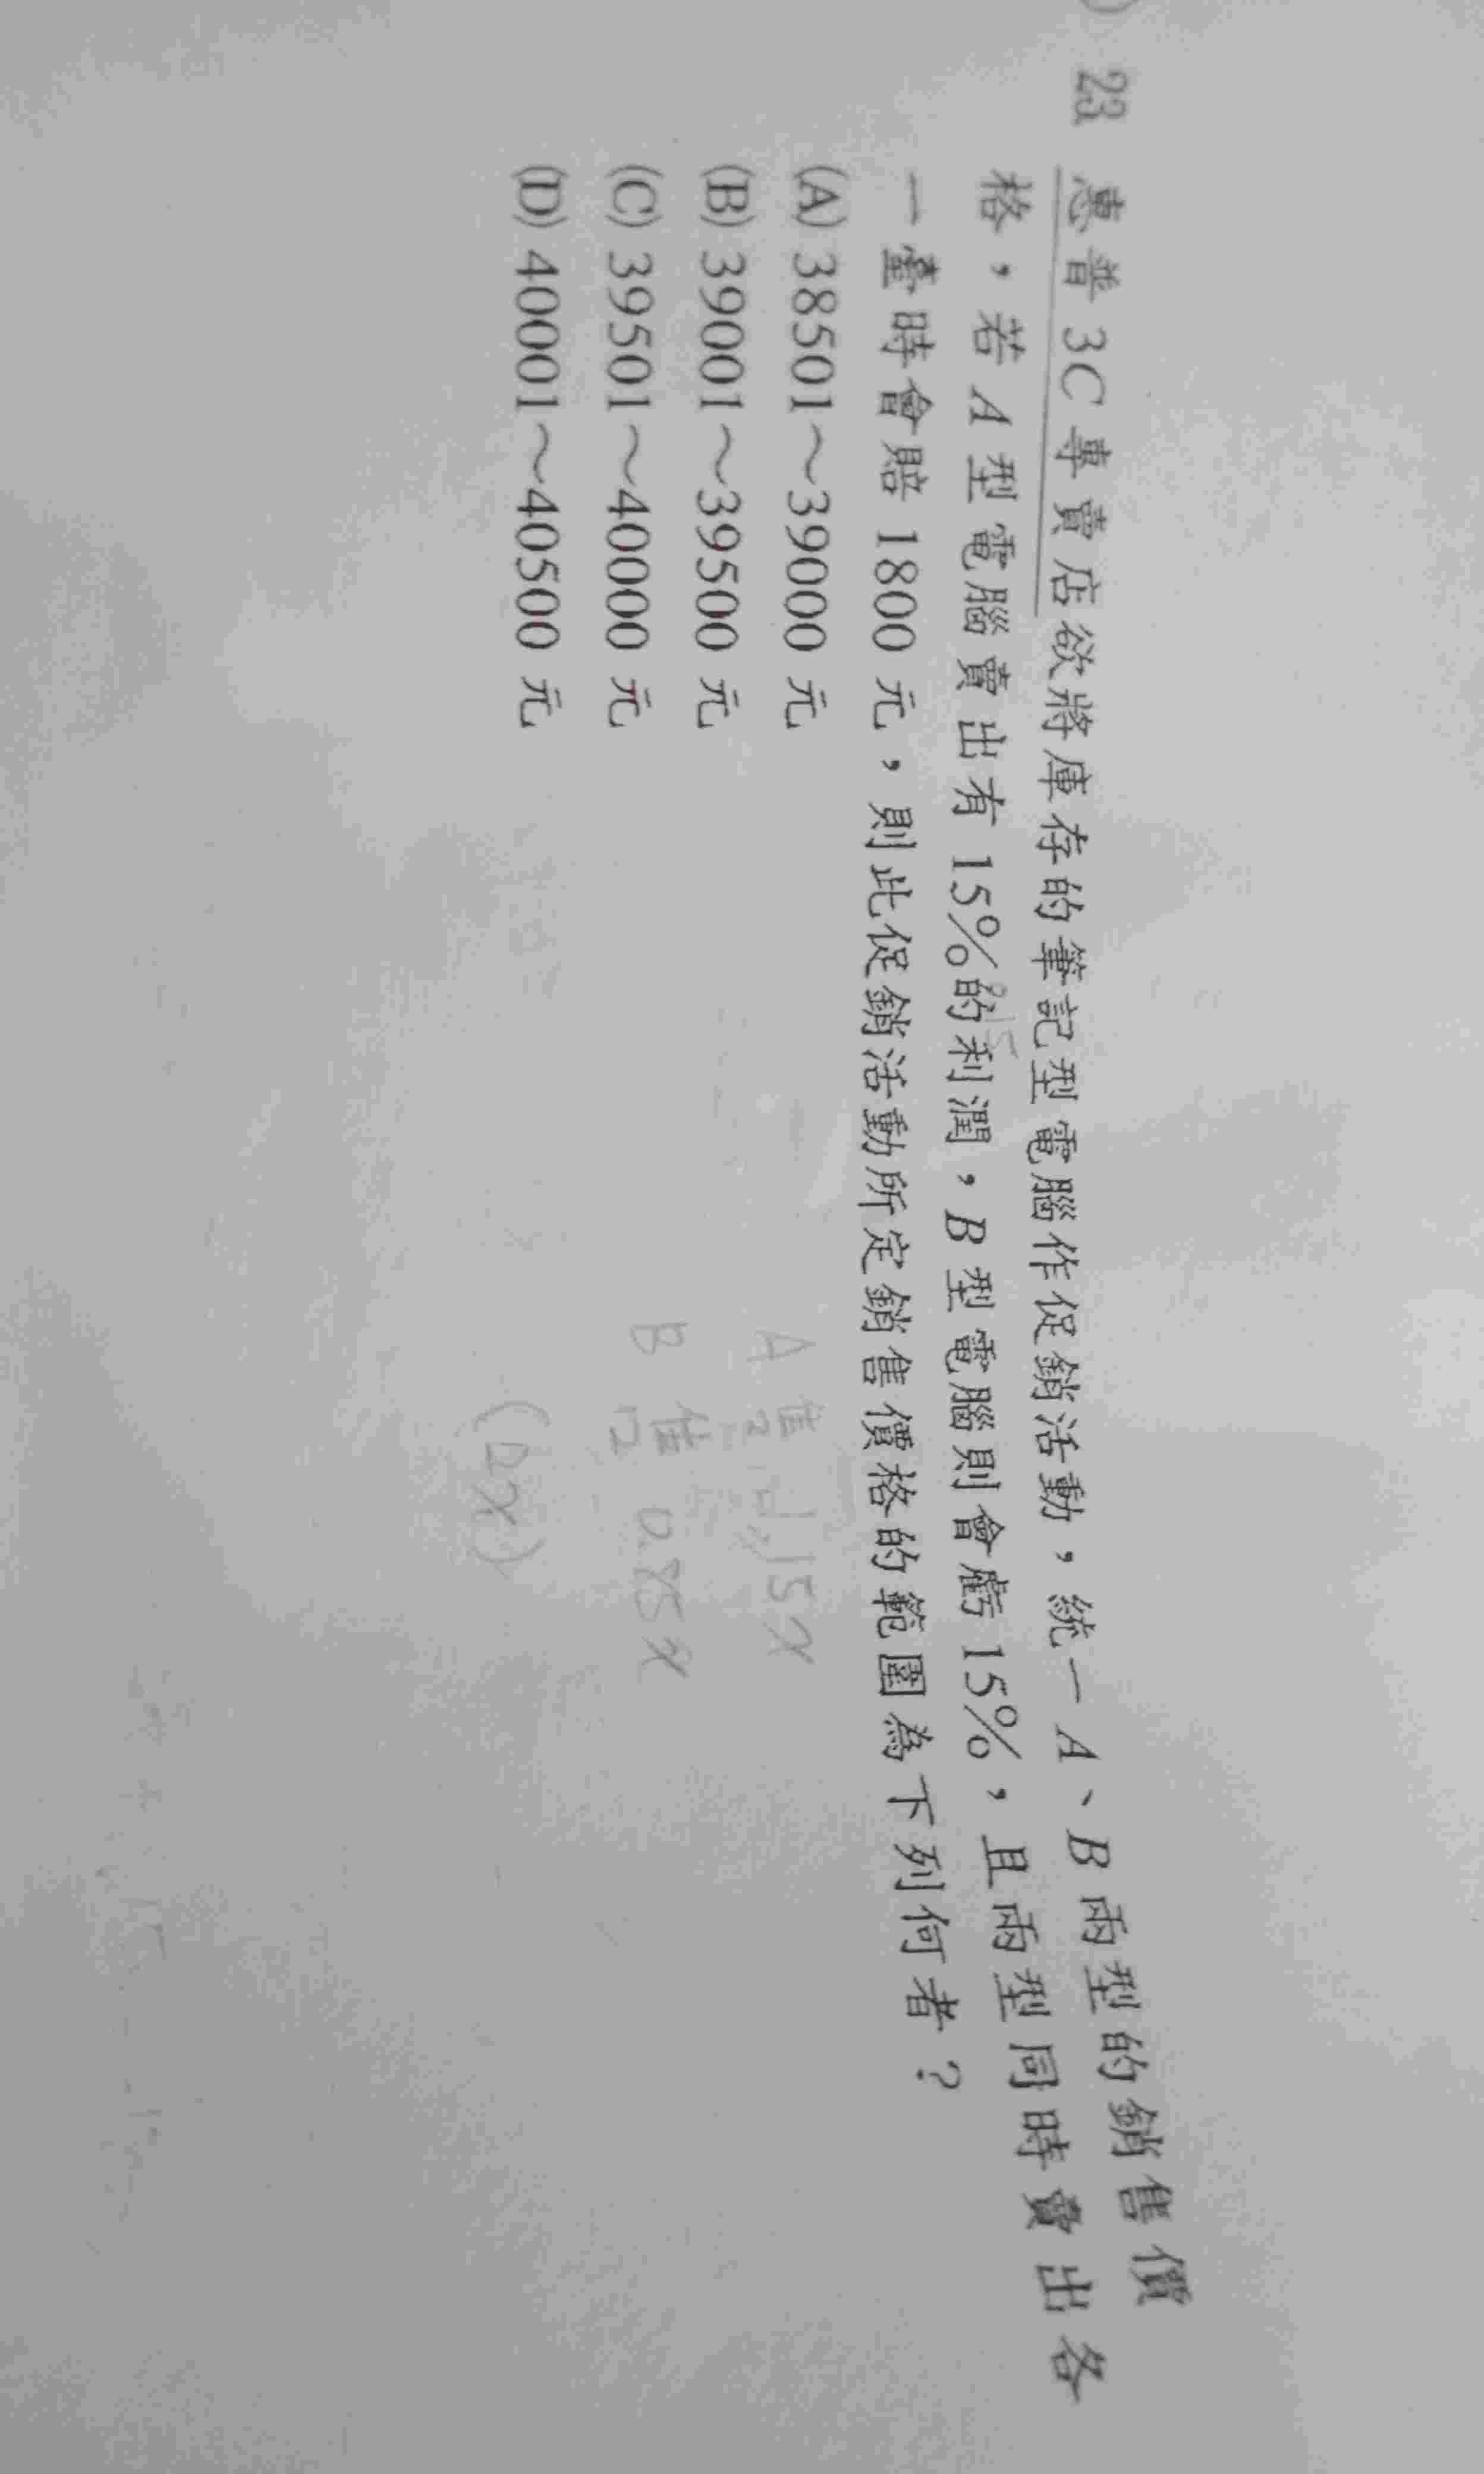 23 惠普3C專賣店欲將庫存的筆記型電腦作促銷活動，統一A、B兩型的銷售價
格，若A型電腦賣出有15%的利潤，B型電腦則會虧15%，且兩型同時賣出各
一臺時會賠1800元，則此促銷活動所定銷售價格的範圍為下列何者？
(A) 38501～39000元
(B) 39001～39500元
(C) 39501～40000元
(D) 40001～40500元
A售 1.15x
B售 0.85x